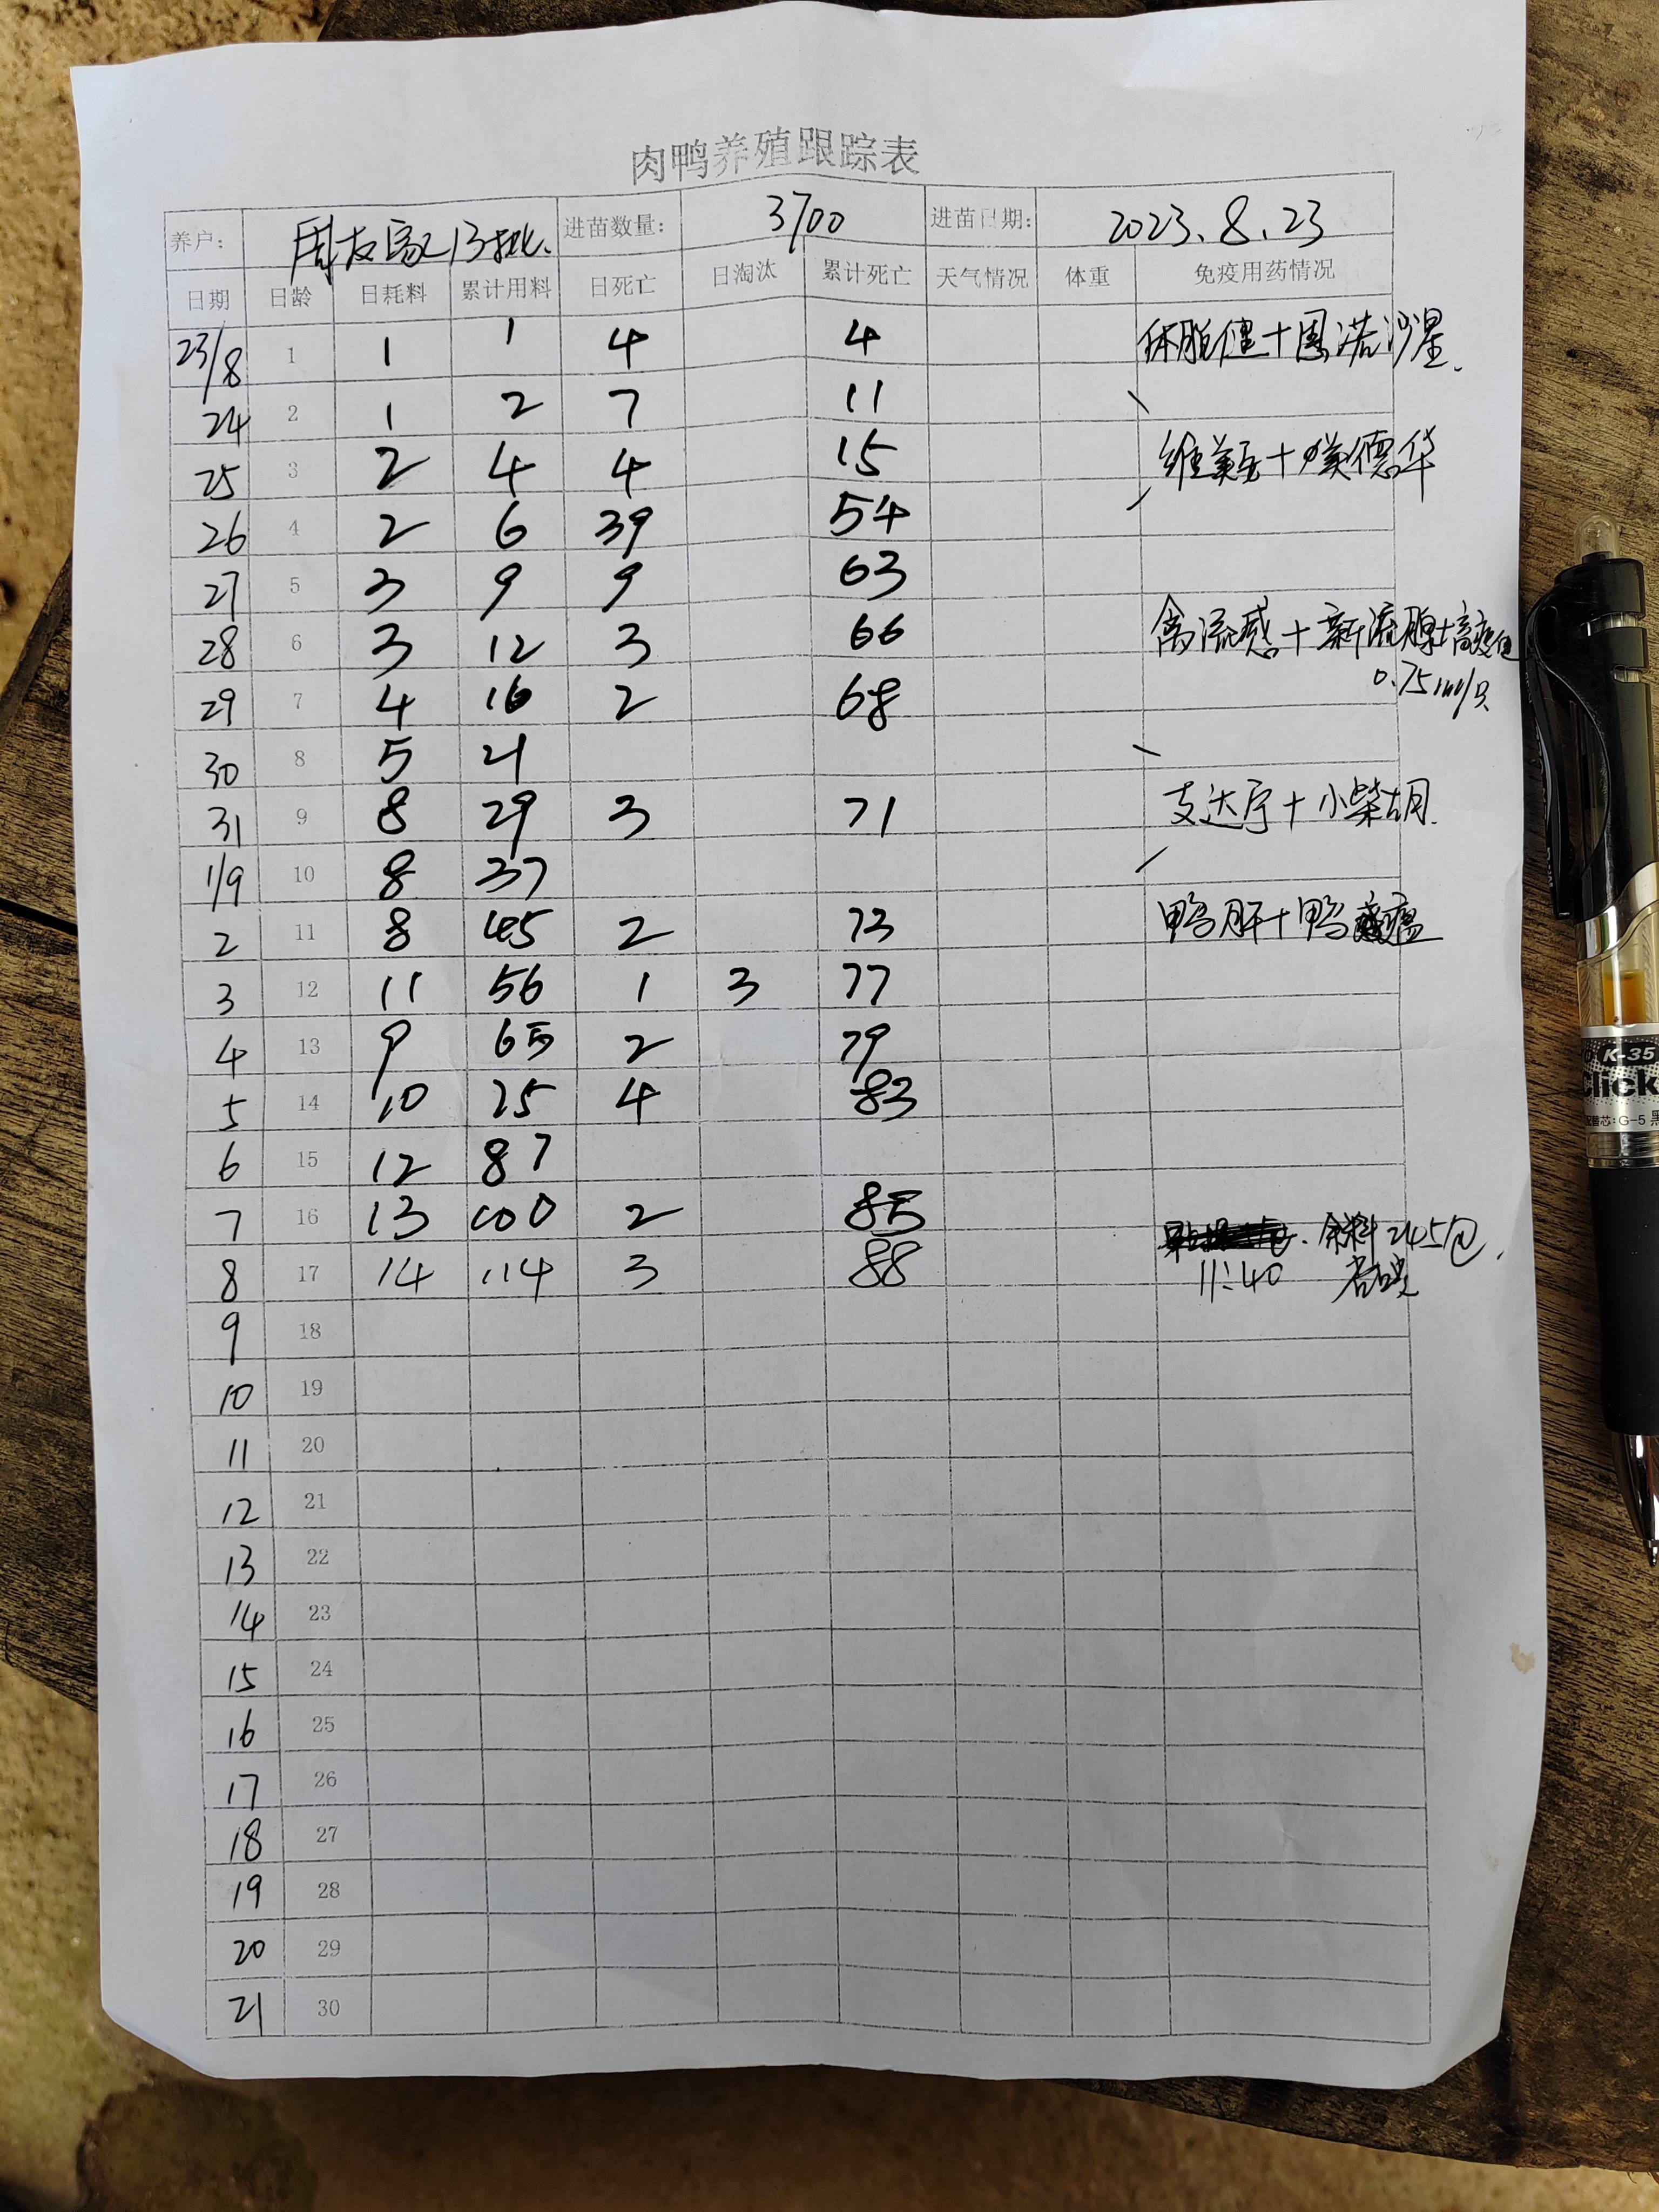 肉鸭养殖跟踪表
养户: 周友家13批. 进苗数量: 3700 进苗日期: 2023.8.23
日期 日龄 日耗料 累计用料 日死亡 日淘汰 累计死亡 天气情况 体重 免疫用药情况
23/8 1 1 1 4 4 体肥健+恩诺沙星.
24 2 1 2 7 11
25 3 2 4 4 15 维美安+噗德华
26 4 2 6 39 54
27 5 3 9 9 63
28 6 3 12 3 66 禽流感+新流腺
0.75ml/只
29 7 4 16 2 68
30 8 5 21
31 9 8 29 3 71 支达宁+小柴胡.
1/9 10 8 37
2 11 8 45 2 73 鸭肝+鸭瘟
3 12 11 56 1 3 77
4 13 9 65 2 79
5 14 10 75 4 83
6 15 12 87
7 16 13 100 2 85 余料245包.
8 17 14 114 3 88 11:40
9 18
10 19
11 20
12 21
13 22
14 23
15 24
16 25
17 26
18 27
19 28
20 29
21 30
K-35
Click
配替芯:G-5 黑